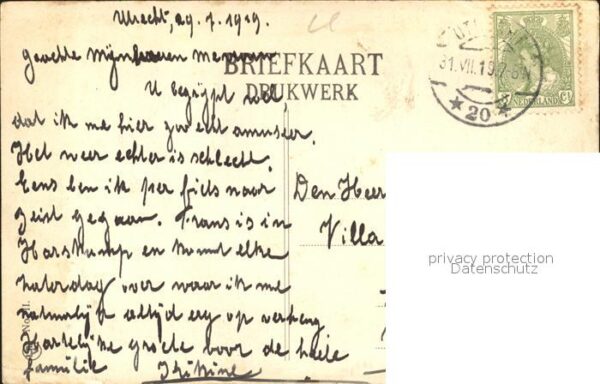 Utrecht, 29.7.1919.
Geachte Mijnheer en Mevrouw
BRIEFKAART
DRUKWERK
U begrijpt wel,
dat ik me hier zoo echt amuseer.
Het weer echter is slecht.
Eens ben ik per fiets naar
Zeist gegaan. Frans is in
Harskamp en komt elke
zaterdag over waar ik me
natuurlijk altijd erg op verheug
Hartelijke groete voor de heele
familie
Den Heer
Villa
31.VII.19
20
NEDERLAND
privacy protection
Datenschutz